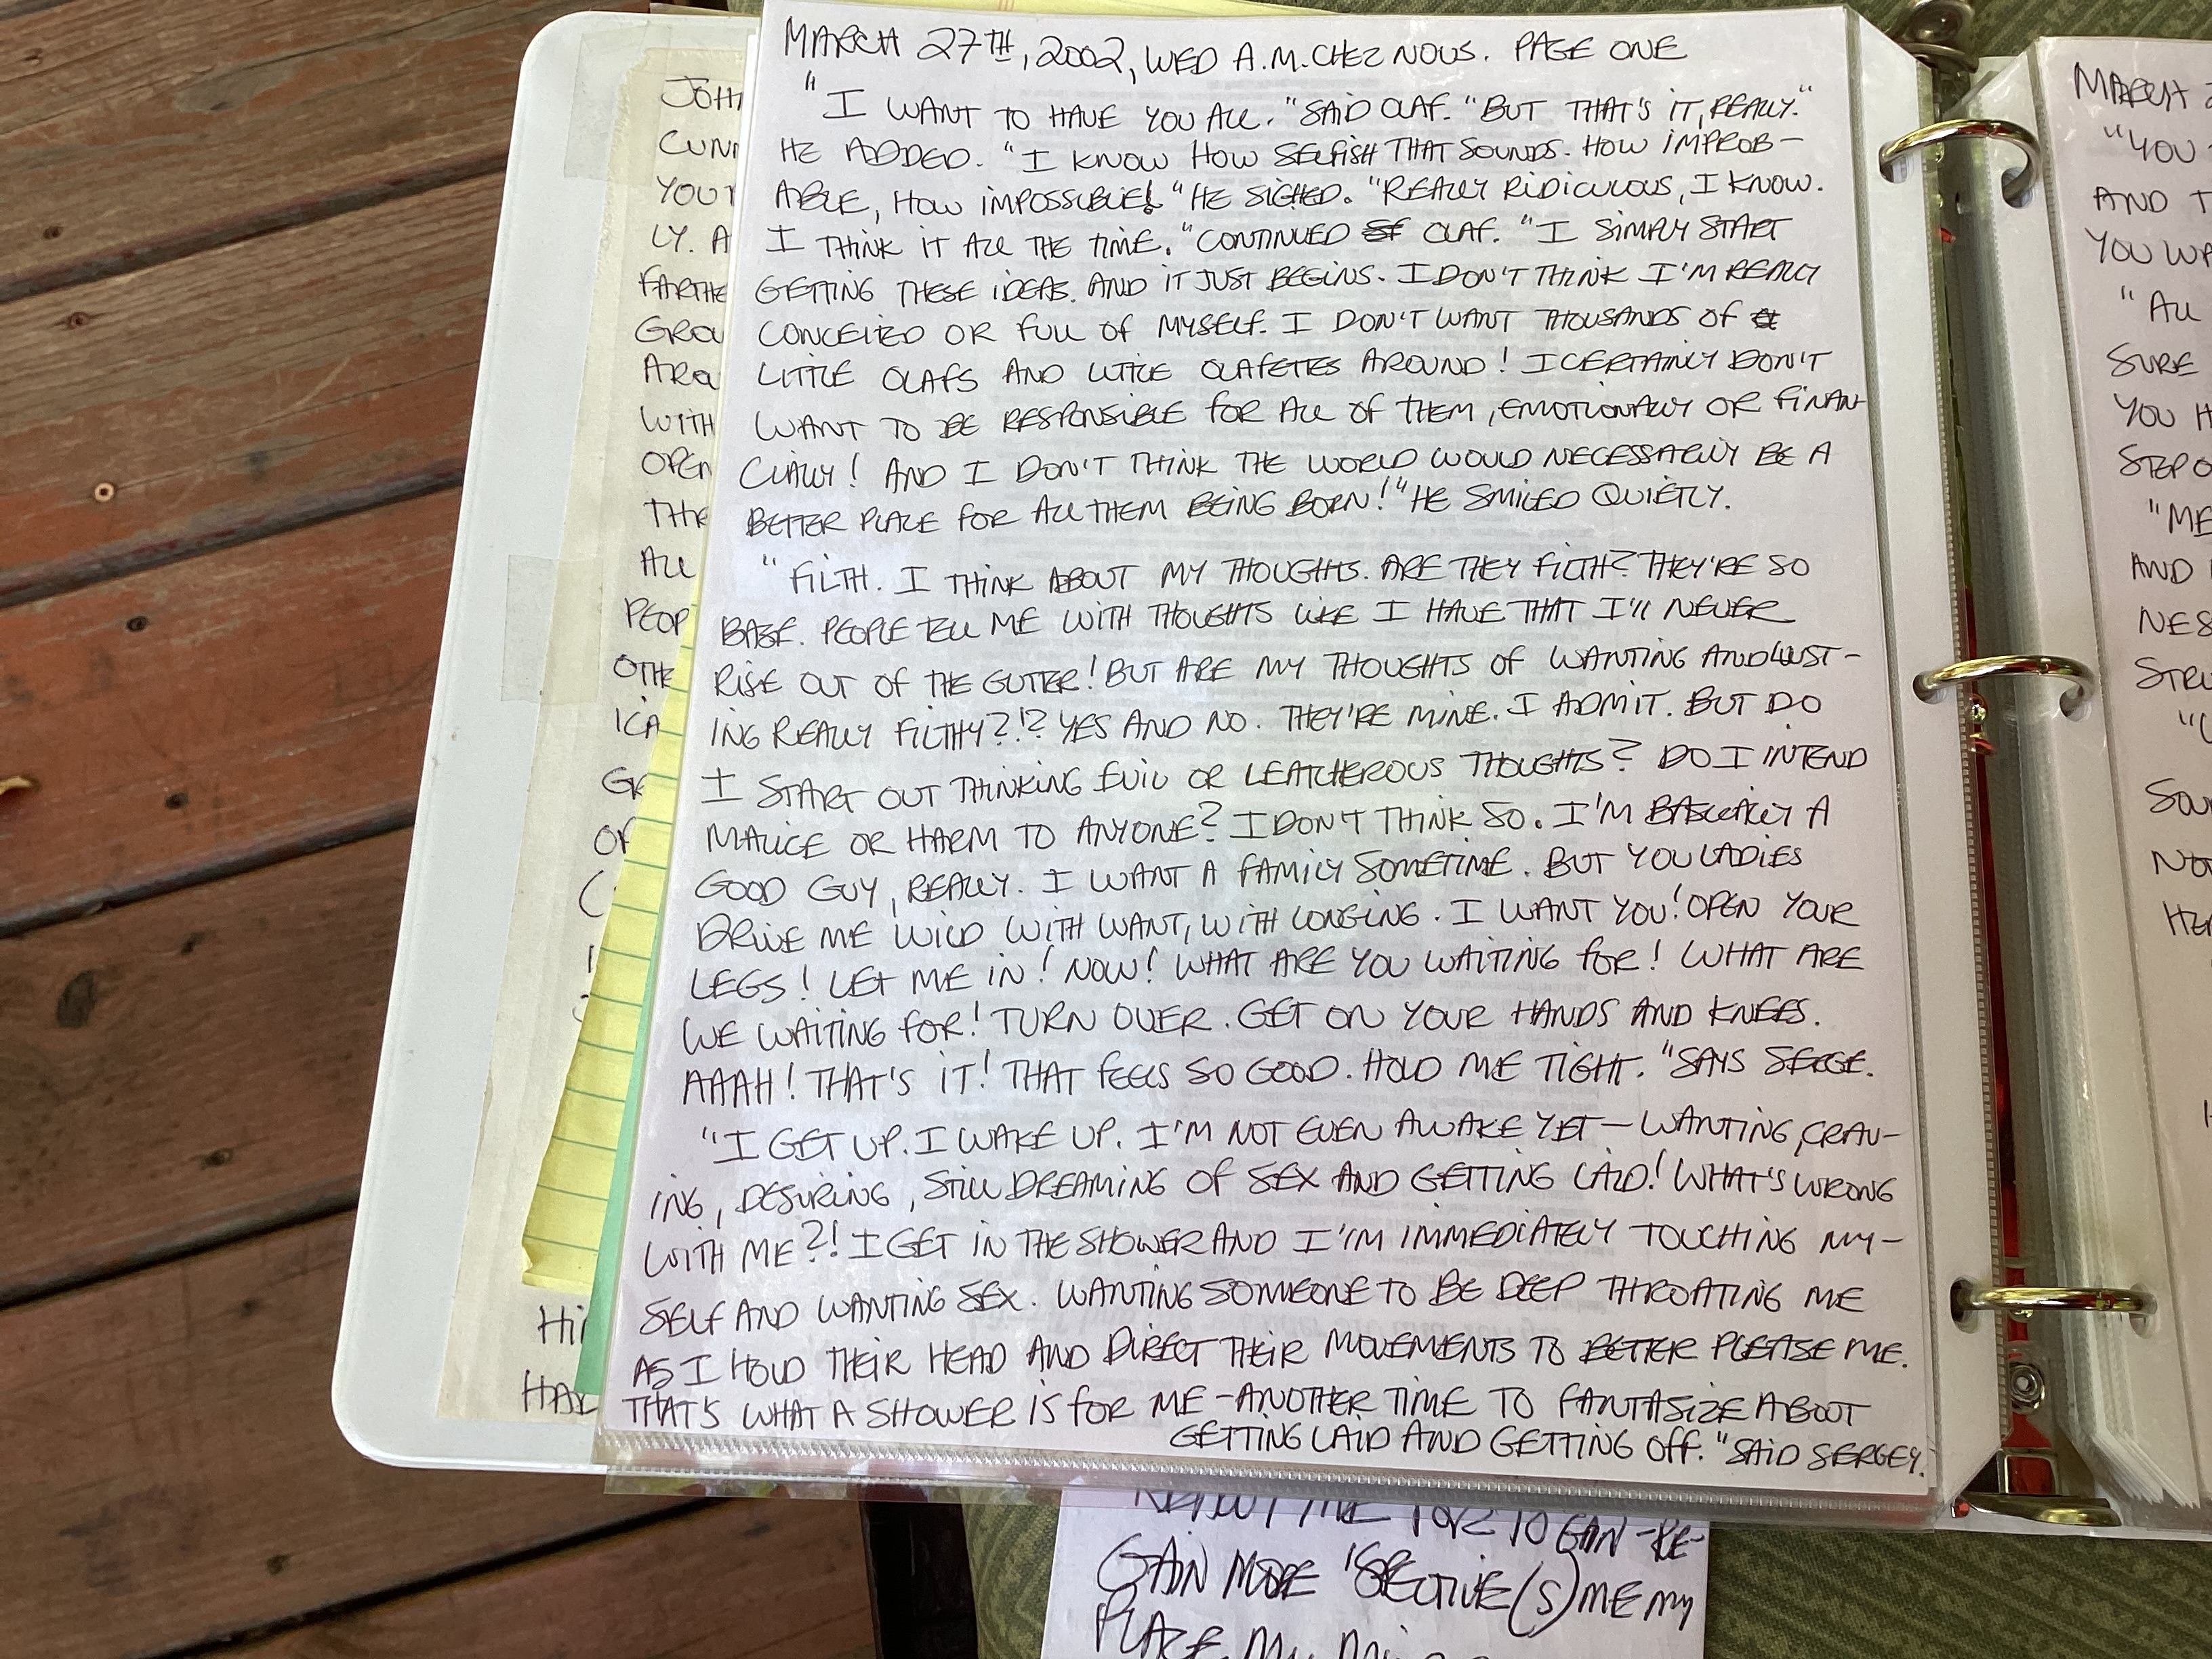 MARCH 27TH, 2002, WED A.M. CHEZ NOUS. PAGE ONE
"I WANT TO HAVE YOU ALL." SAID OLAF. "BUT THAT'S IT, REALLY."
HE ADDED. "I KNOW HOW SELFISH THAT SOUNDS. HOW IMPROB-
ABLE, HOW IMPOSSUBLE! "HE SIGHED. "REALLY RIDICULOUS, I KNOW.
I THINK IT ALL THE TIME. "CONTINUED OLAF. "I SIMPLY START
GETTING THESE IDEAS. AND IT JUST BEGINS. I DON'T THINK I'M REALLY
CONCEITED OR FULL OF MYSELF. I DON'T WANT THOUSANDS OF
LITTLE OLAFS AND LITTLE OLAFETTES AROUND! I CERTAINLY DON'T
WANT TO BE RESPONSIBLE FOR ALL OF THEM, EMOTIONALLY OR FINAN-
CIALLY! AND I DON'T THINK THE WORLD WOULD NECESSARILY BE A
BETTER PLACE FOR ALL THEM BEING BORN!" HE SMILED QUIETLY.
"FILTH. I THINK ABOUT MY THOUGHTS. ARE THEY FILTH? THEY'RE SO
BASE. PEOPLE TELL ME WITH THOUGHTS LIKE I HAVE THAT I'LL NEVER
RISE OUT OF THE GUTTER! BUT ARE MY THOUGHTS OF WANTING AND LUST-
ING REALLY FILTHY?!? YES AND NO. THEY'RE MINE. I ADMIT. BUT DO
I START OUT THINKING EVIL OR LEATCHEROUS THOUGHTS? DO I INTEND
MALICE OR HARM TO ANYONE? I DON'T THINK SO. I'M BASICALLY A
GOOD GUY, REALLY. I WANT A FAMILY SOMETIME. BUT YOU LADIES
DRIVE ME WILD WITH WANT, WITH LONGING. I WANT YOU! OPEN YOUR
LEGS! LET ME IN! NOW! WHAT ARE YOU WAITING FOR! WHAT ARE
WE WAITING FOR! TURN OVER. GET ON YOUR HANDS AND KNEES.
AAAH! THAT'S IT! THAT FEELS SO GOOD. HOLD ME TIGHT. "SAYS SERGE.
"I GET UP. I WAKE UP. I'M NOT EVEN AWAKE YET — WANTING, CRAV-
ING, DESIRING, STILL DREAMING OF SEX AND GETTING LAID! WHAT'S WRONG
WITH ME?! I GET IN THE SHOWER AND I'M IMMEDIATELY TOUCHING MY-
SELF AND WANTING SEX. WANTING SOMEONE TO BE DEEP THROATING ME
AS I HOLD THEIR HEAD AND DIRECT THEIR MOVEMENTS TO BETTER PLEASE ME.
THAT'S WHAT A SHOWER IS FOR ME - ANOTHER TIME TO FANTASIZE ABOUT
GETTING LAID AND GETTING OFF. "SAID SERGEY.
JOH
CUN
YOU
LY. A
FARTHE
GROU
ARO
WITH
OPEN
THR
ALL
PEOP
OTHE
ICA
OF
HI
HA
MARCH 2
"YOU
AND T
YOU WA
"ALL
SURE
YOU H
STEP O
"ME
AND
NES
STRU
SOU
NO
HE
TO GAIN-RE-
GAIN MORE 'SPECTIVE(S) ME MY
PLACE. MY